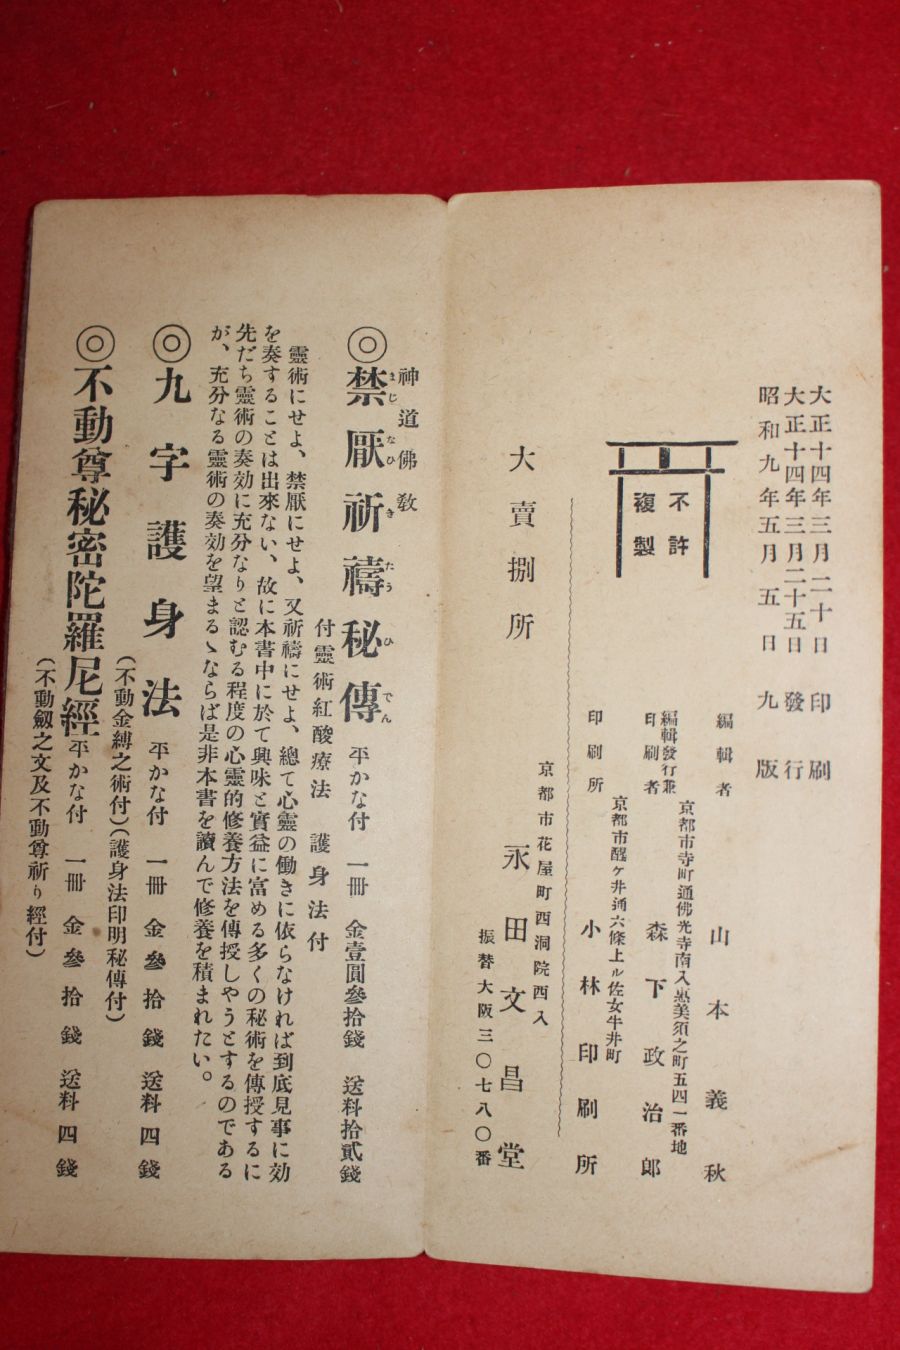 大正十四年三月二十日印刷
大正十四年三月二十五日發行
昭和九年五月五日九版
不許
複製
編輯者
山本義秋
京都市寺町通佛光寺南入惠美須之町五四一番地
編輯發行兼
印刷者
森下政治郎
京都市醒ケ井通六條上ル佐女牛井町
印刷所
小林印刷所
大賣捌所
京都市花屋町西洞院西入
永田文昌堂
振替大阪三〇七八〇番
神道佛教
◎禁厭祈禱秘傳 平かな付 一冊 金壹圓參拾錢 送料拾貳錢
まじなひきたうひでん
付靈術紅酸療法 護身法付
靈術にせよ、禁厭にせよ、又祈禱にせよ、總て心靈の働きに依らなければ到底見事に効
を奏することは出來ない、故に本書中に於て興味と實益に富める多くの秘術を傳授するに
先だち靈術の奏効に充分なりと認むる程度の心靈的修養方法を傳授しやうとするのである
が、充分なる靈術の奏効を望まるゝならば是非本書を讀んで修養を積まれたい。
◎九字護身法 平かな付 一冊 金參拾錢 送料四錢
(不動金縛之術付)(護身法印明秘傳付)
◎不動尊秘密陀羅尼經 平かな付 一冊 金參拾錢 送料四錢
(不動劔之文及不動尊祈り經付)